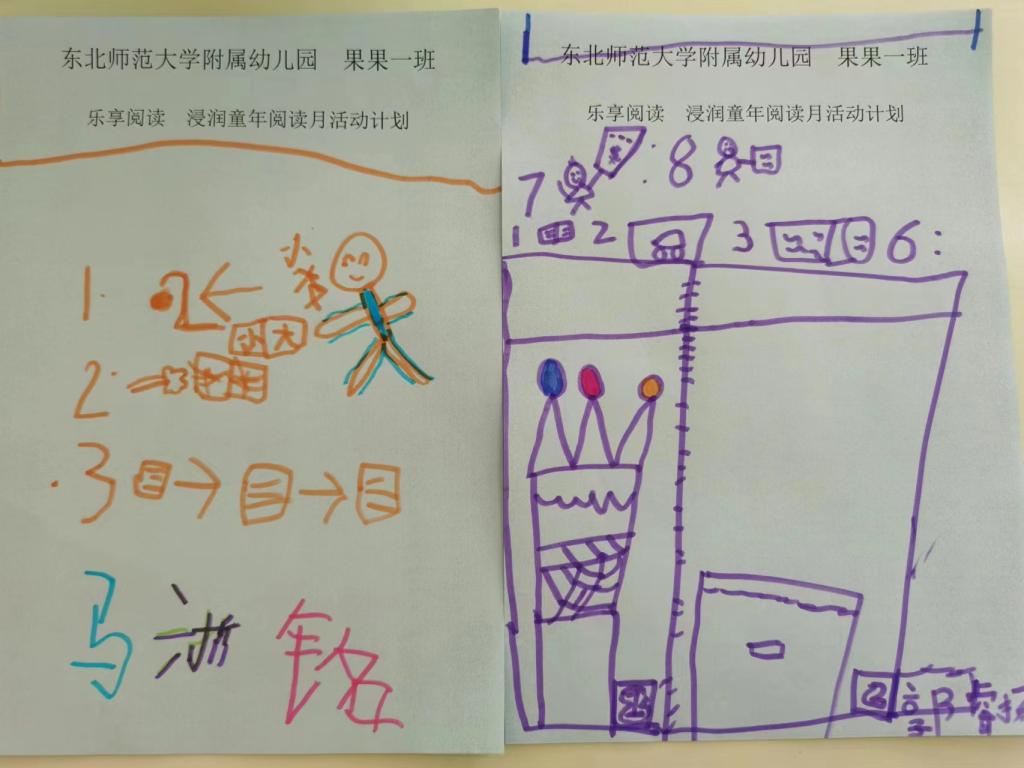 东北师范大学附属幼儿园 果果一班
乐享阅读 浸润童年阅读月活动计划
1. 2 小
大
2.
3
马 浙 铭
东北师范大学附属幼儿园 果果一班
乐享阅读 浸润童年阅读月活动计划
7 : 8
1 2 3 6: